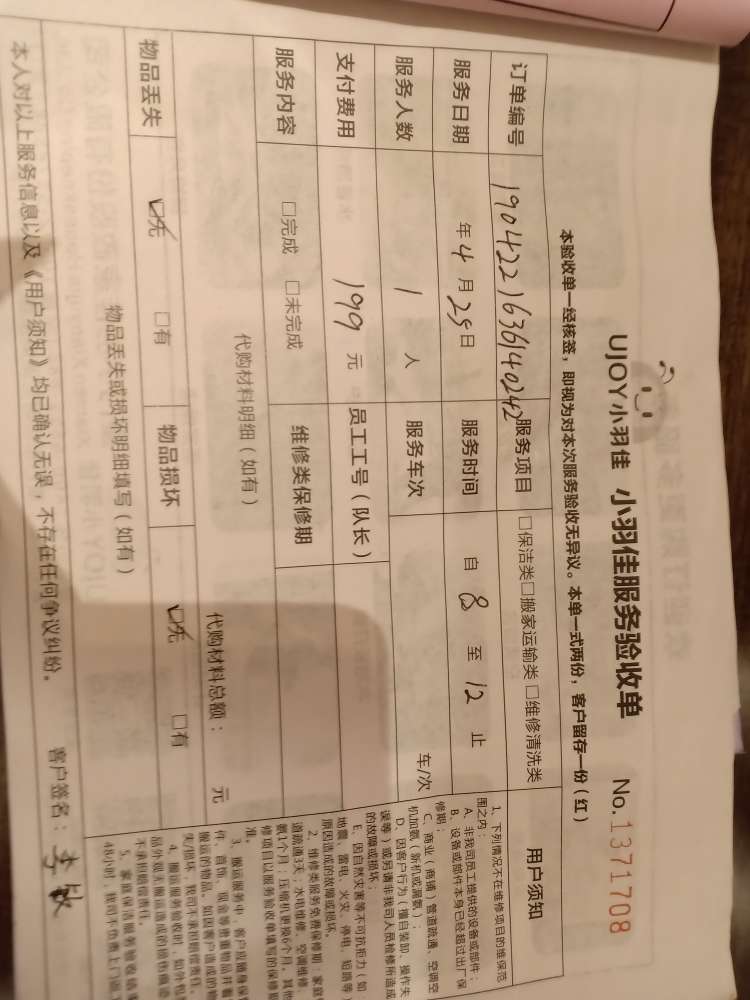 UJOY小羽佳 小羽佳服务验收单 No.1371708
本验收单一经核签，即视为对本次服务验收无异议。本单一式两份，客户留存一份（红）
订单编号 1904221636140242 服务项目 □保洁类□搬家运输类□维修清洗类
服务日期 年4月25日 服务时间 自 8 至 12 止
服务人数 1 人 服务车次 车/次
支付费用 199 元 员工工号（队长）
服务内容 □完成 □未完成 维修类保修期
代购材料明细（如有） 代购材料总额： 元
物品丢失 ☑无 □有 物品损坏 ☑无 □有
物品丢失或损坏明细填写（如有）
本人对以上服务信息以及《用户须知》均已确认无误，不存在任何争议纠纷。 客户签名：李敏
用户须知
1、下列情况不在维修项目的维保范
围之内：
A、非我司员工提供的设备或部件；
B、设备或部件本身已经超过出厂保
修期；
C、商业（商铺）管道疏通、空调空
机加氨（新机或漏氨）；
D、因客户行为（擅自装卸、操作失
误等）或另请非我司人员检修所造成
的故障或损坏；
E、因自然灾害等不可抗拒力（如：
地震、雷电、火灾、停电、短路等）
原因造成的故障或损坏。
2、维修类服务免费保修期：家庭管
道疏通3天；水电维修、空调维修、
氨1个月；压缩机更换6个月。其他
修项目以服务验收单填写的保修期
准。
3、搬运服务中，客户应随身保管
件、首饰、现金等贵重物品并看
搬运的物品。如因客户造成的物
失/损坏，我司不承担赔偿责任。
4、搬运服务验收时，如外包
品外观无搬运造成的损伤痕迹
不承担赔偿责任。
5、家庭保洁服务验收结束
48小时，我司不负责上门返工